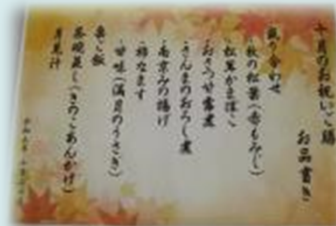 十月のお祝いご膳
お品書き
盛り合わせ
・秋の松葉(壱もみじ)
・松茸かま揚げ
・おさつ甘露煮
・さんまのおろし煮
・南京みの揚げ
・柿なます
・甘味(満月のうさぎ)
栗ご飯
茶碗蒸し(きのこあんかけ)
月見汁